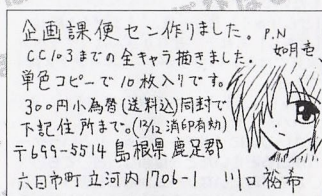 企画課便セン作りました。 P.N
CC103までの全キャラ描きました。 如月壱
単色コピーで10枚入りです。
300円小為替(送料込)同封で
下記住所まで。(12/12消印有効)
〒699-5514 島根県鹿足郡
六日市町立河内1706-1 川口裕希